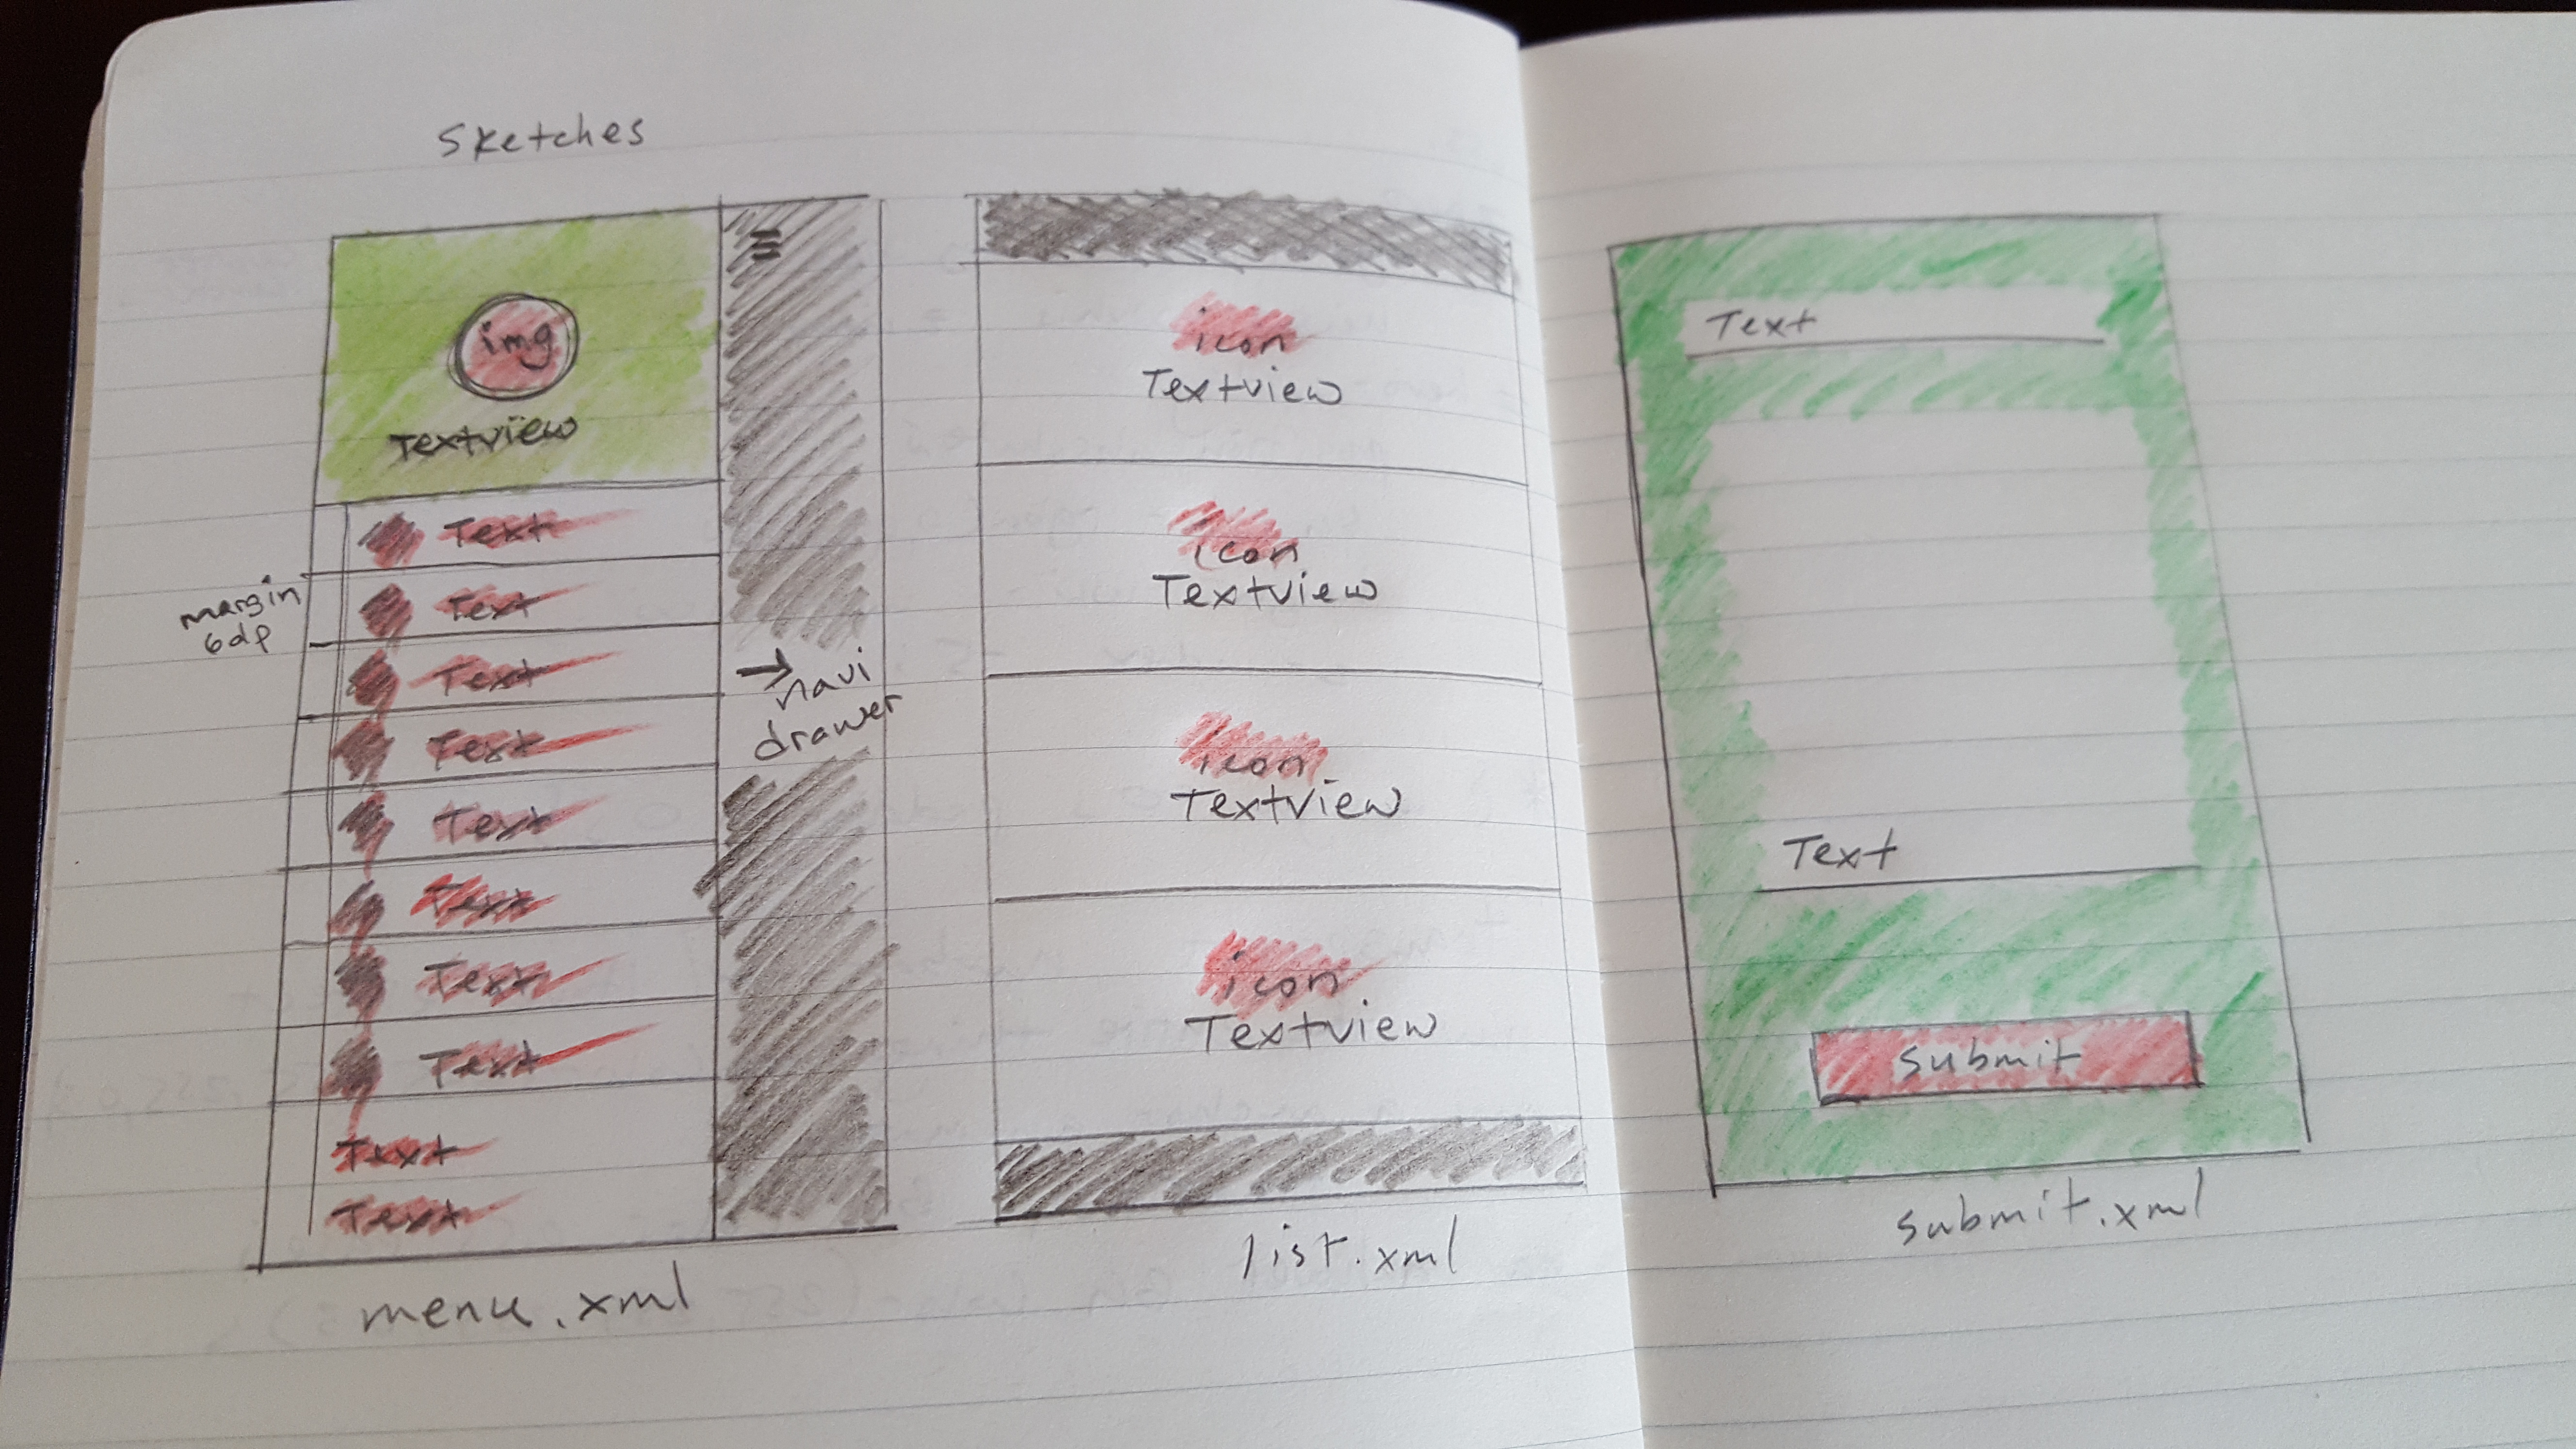 Sketches
img
Textview
Text
Text
Text
Text
Text
Text
Text
Text
Text
Text
margin
6dp
navi
drawer
menu.xml
icon
Textview
icon
Textview
icon
Textview
icon
Textview
list.xml
Text
Text
submit
submit.xml